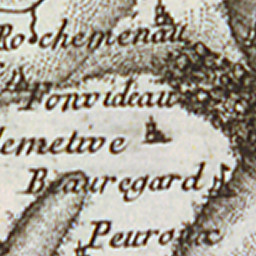 Rochemenau
Fonvideau
lemetive
Beauregard
Peuroux